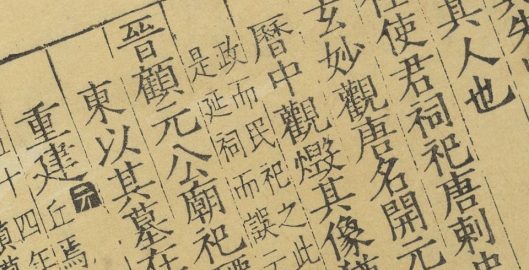 其人也
使君祠祀唐刺史
玄妙觀唐名開元
曆中觀燬其像
政而民祀之此
是延祠而誤
晉顧元公廟祀
東以其墓在
重建
十四年